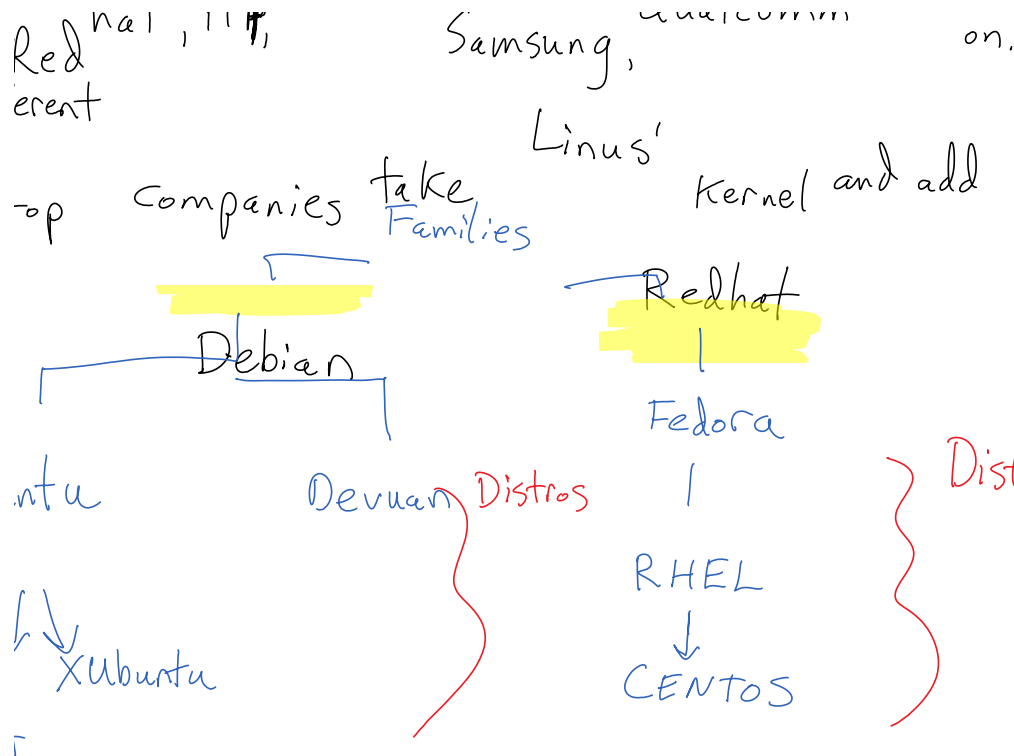 Red Samsung, on.
erent
Linus'
companies take Kernel and add
Families
Redhat
Debian
Fedora
ntu Devuan Distros Dist
RHEL
XUbuntu CENTOS